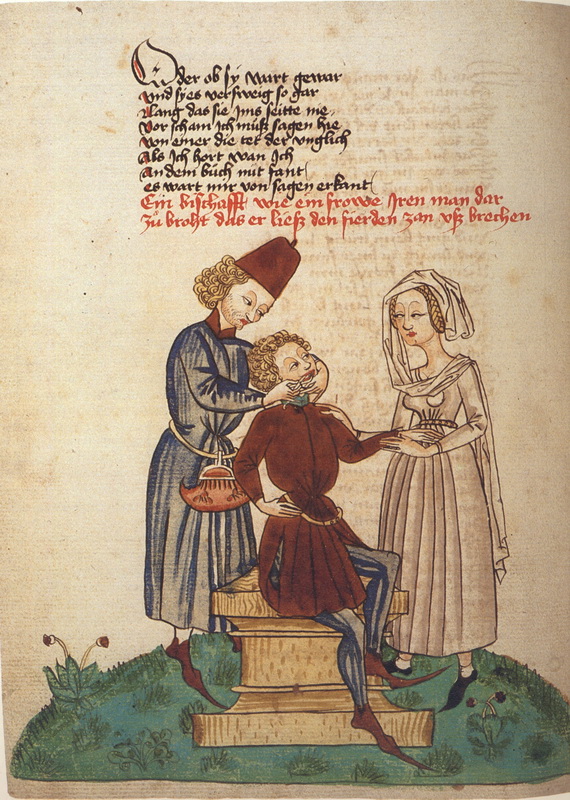 Oder ob sy wart gewar
Und sy es verschweig so gar
Lang das sie ims seitte nie
Vor scham Ich muß sagen hie
Von einer die tet der unglich
Als Ich hort wan Ich
An dem buch nut fant
es wart mir von sagen erkant
Ein bischafft wie ein frowe Iren man dar
Zů broht das er ließ den fierden zan uß brechen